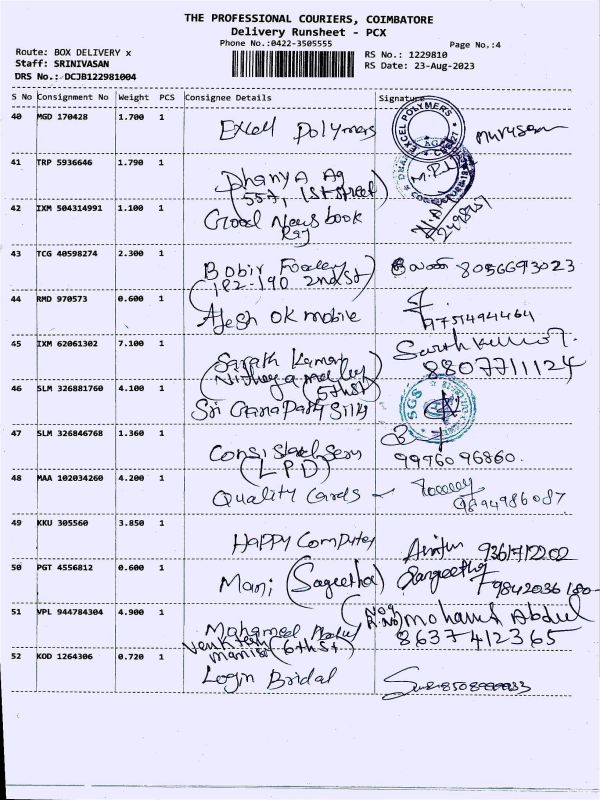 THE PROFESSIONAL COURIERS, COIMBATORE
Delivery Runsheet - PCX
Phone No.:0422-3505555
Page No.:4
Route: BOX DELIVERY x
RS No.: 1229810
Staff: SRINIVASAN
RS Date: 23-Aug-2023
DRS No.: DCJB122981004
S No Consignment No Weight PCS Consignee Details Signature
40 MGD 170428 1.700 1
Excell Polymers
EXCEL POLYMERS
41 TRP 5936646 1.790 1
Dhanya Ag
(557, 1st street)
42 IXM 504314991 1.100 1
Good News book
43 TCG 40598274 2.300 1
Bobir
(182-190 2nd St)
8056693023
44 RMD 970573 0.600 1
Ajesh OK mobile
9751494464
45 IXM 62061302 7.100 1
Sarath Kumar
(5th St)
Sarathkumar
8807711124
46 SLM 326881760 4.100 1
Sri Ganapathy Silks
SGS
47 SLM 326846768 1.360 1
(LPD)
99960 96860.
48 MAA 102034260 4.200 1
Quality Cards
9894986087
49 KKU 305560 3.850 1
Happy Computer
50 PGT 4556812 0.600 1
Mani (Sageetha)
Sangeetha
51 VPL 944784304 4.900 1
Mohamed Abdul
(6th St)
Mohamed Abdul
8637412365
52 KOD 1264306 0.720 1
Login Bridal